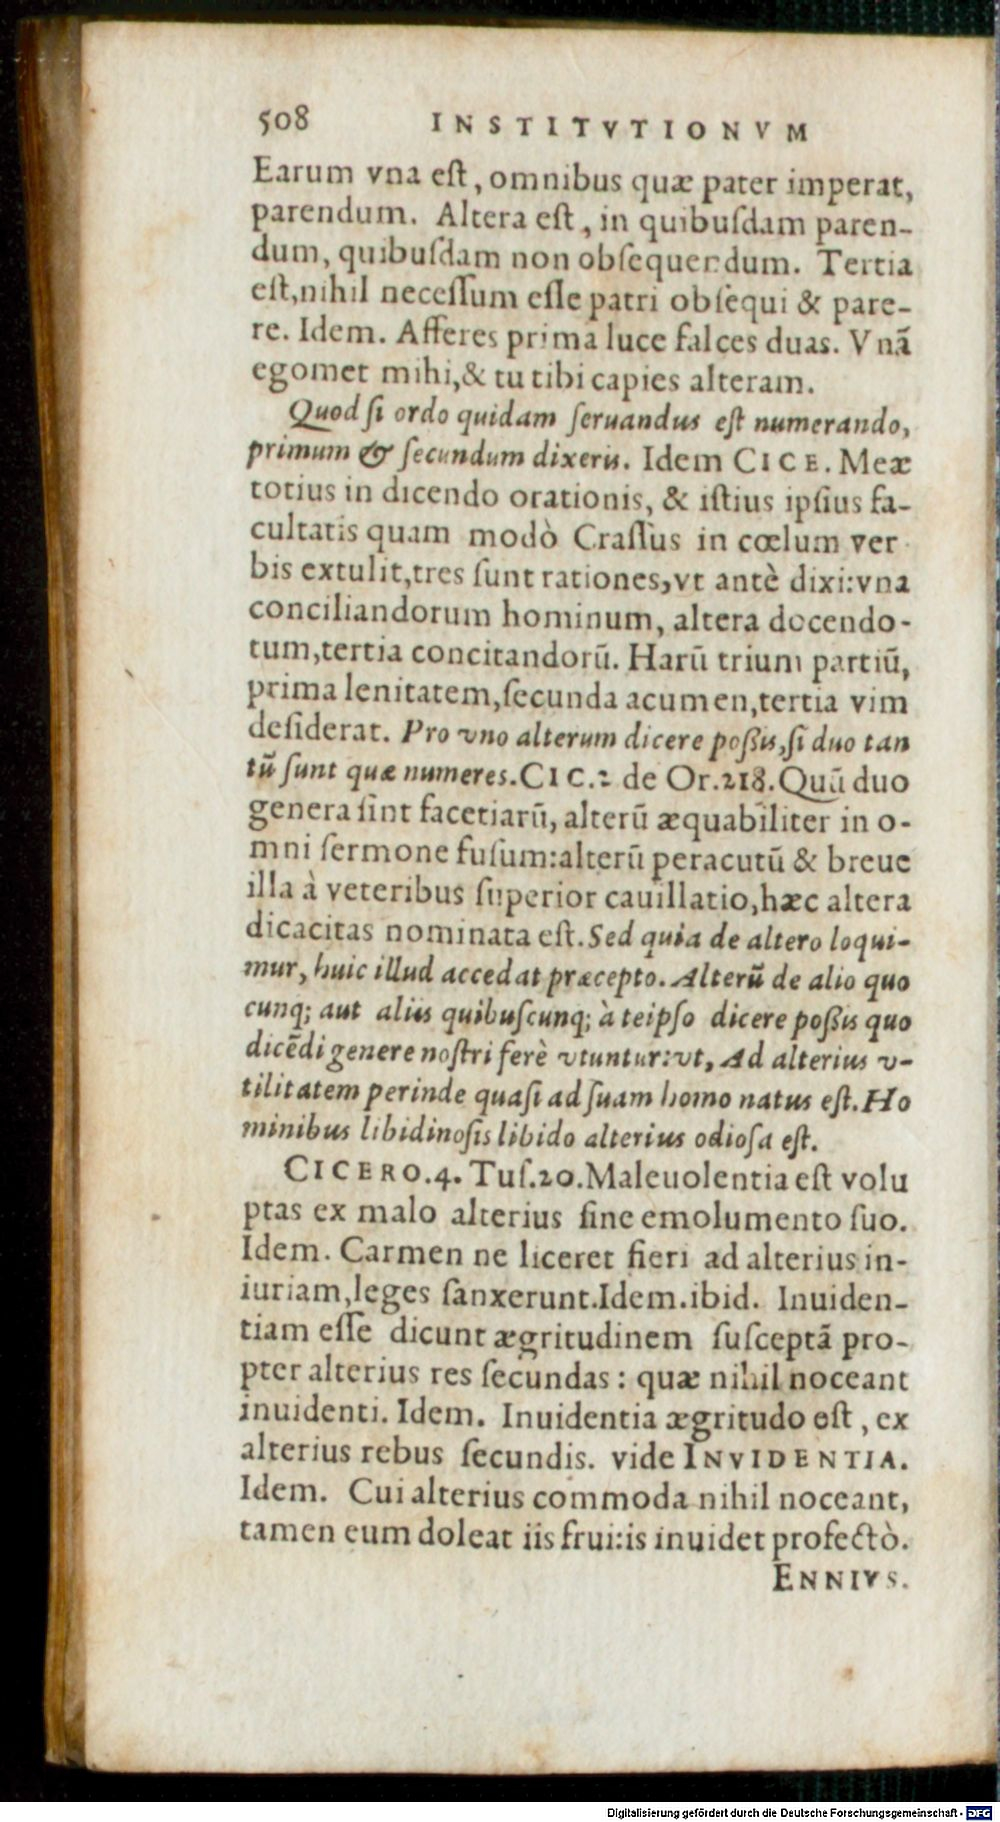 508 INSTITVTIONVM
Earum vna eſt, omnibus quæ pater imperat,
parendum. Altera eſt, in quibuſdam paren-
dum, quibuſdam non obſequendum. Tertia
eſt,nihil neceſſum eſſe patri obſequi & pare-
re. Idem. Afferes prima luce falces duas. Vnã
egomet mihi,& tu tibi capies alteram.
Quod ſi ordo quidam ſeruandus eſt numerando,
primum & ſecundum dixeris. Idem CICE. Meæ
totius in dicendo orationis, & iſtius ipſius fa-
cultatis quam modò Craſſus in cœlum ver
bis extulit,tres ſunt rationes,vt antè dixi:vna
conciliandorum hominum, altera docendo-
tum,tertia concitandorũ. Harũ trium partiũ,
prima lenitatem,ſecunda acumen,tertia vim
deſiderat. Pro vno alterum dicere poßis,ſi duo tan
tũ ſunt quæ numeres.CIC.2 de Or.218.Quũ duo
genera ſint facetiarũ, alterũ æquabiliter in o-
mni ſermone fuſum:alterũ peracutũ & breue
illa à veteribus ſuperior cauillatio,hæc altera
dicacitas nominata eſt.Sed quia de altero loqui-
mur, huic illud accedat præcepto. Alterũ de alio quo
cunq; aut aliis quibuſcunq; à teipſo dicere poßis quo
dicẽdi genere noſtri ferè vtuntur:vt, Ad alterius v-
tilitatem perinde quaſi ad ſuam homo natus eſt.Ho
minibus libidinoſis libido alterius odioſa eſt.
CICERO.4. Tuſ.20.Maleuolentia eſt volu
ptas ex malo alterius ſine emolumento ſuo.
Idem. Carmen ne liceret fieri ad alterius in-
iuriam,leges ſanxerunt.Idem.ibid. Inuiden-
tiam eſſe dicunt ægritudinem ſuſceptã pro-
pter alterius res ſecundas : quæ nihil noceant
inuidenti. Idem. Inuidentia ægritudo eſt, ex
alterius rebus ſecundis. vide INVIDENTIA.
Idem. Cui alterius commoda nihil noceant,
tamen eum doleat iis frui:is inuidet profectò.
ENNIVS.
Digitalisierung gefördert durch die Deutsche Forschungsgemeinschaft - DFG